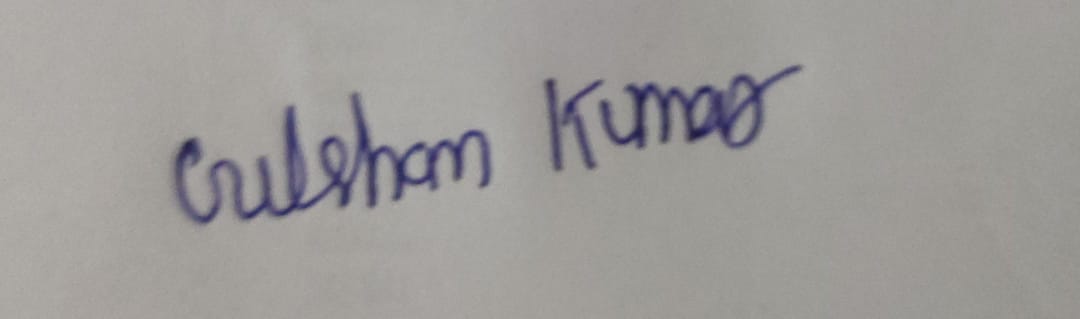 Gulsham Kumar